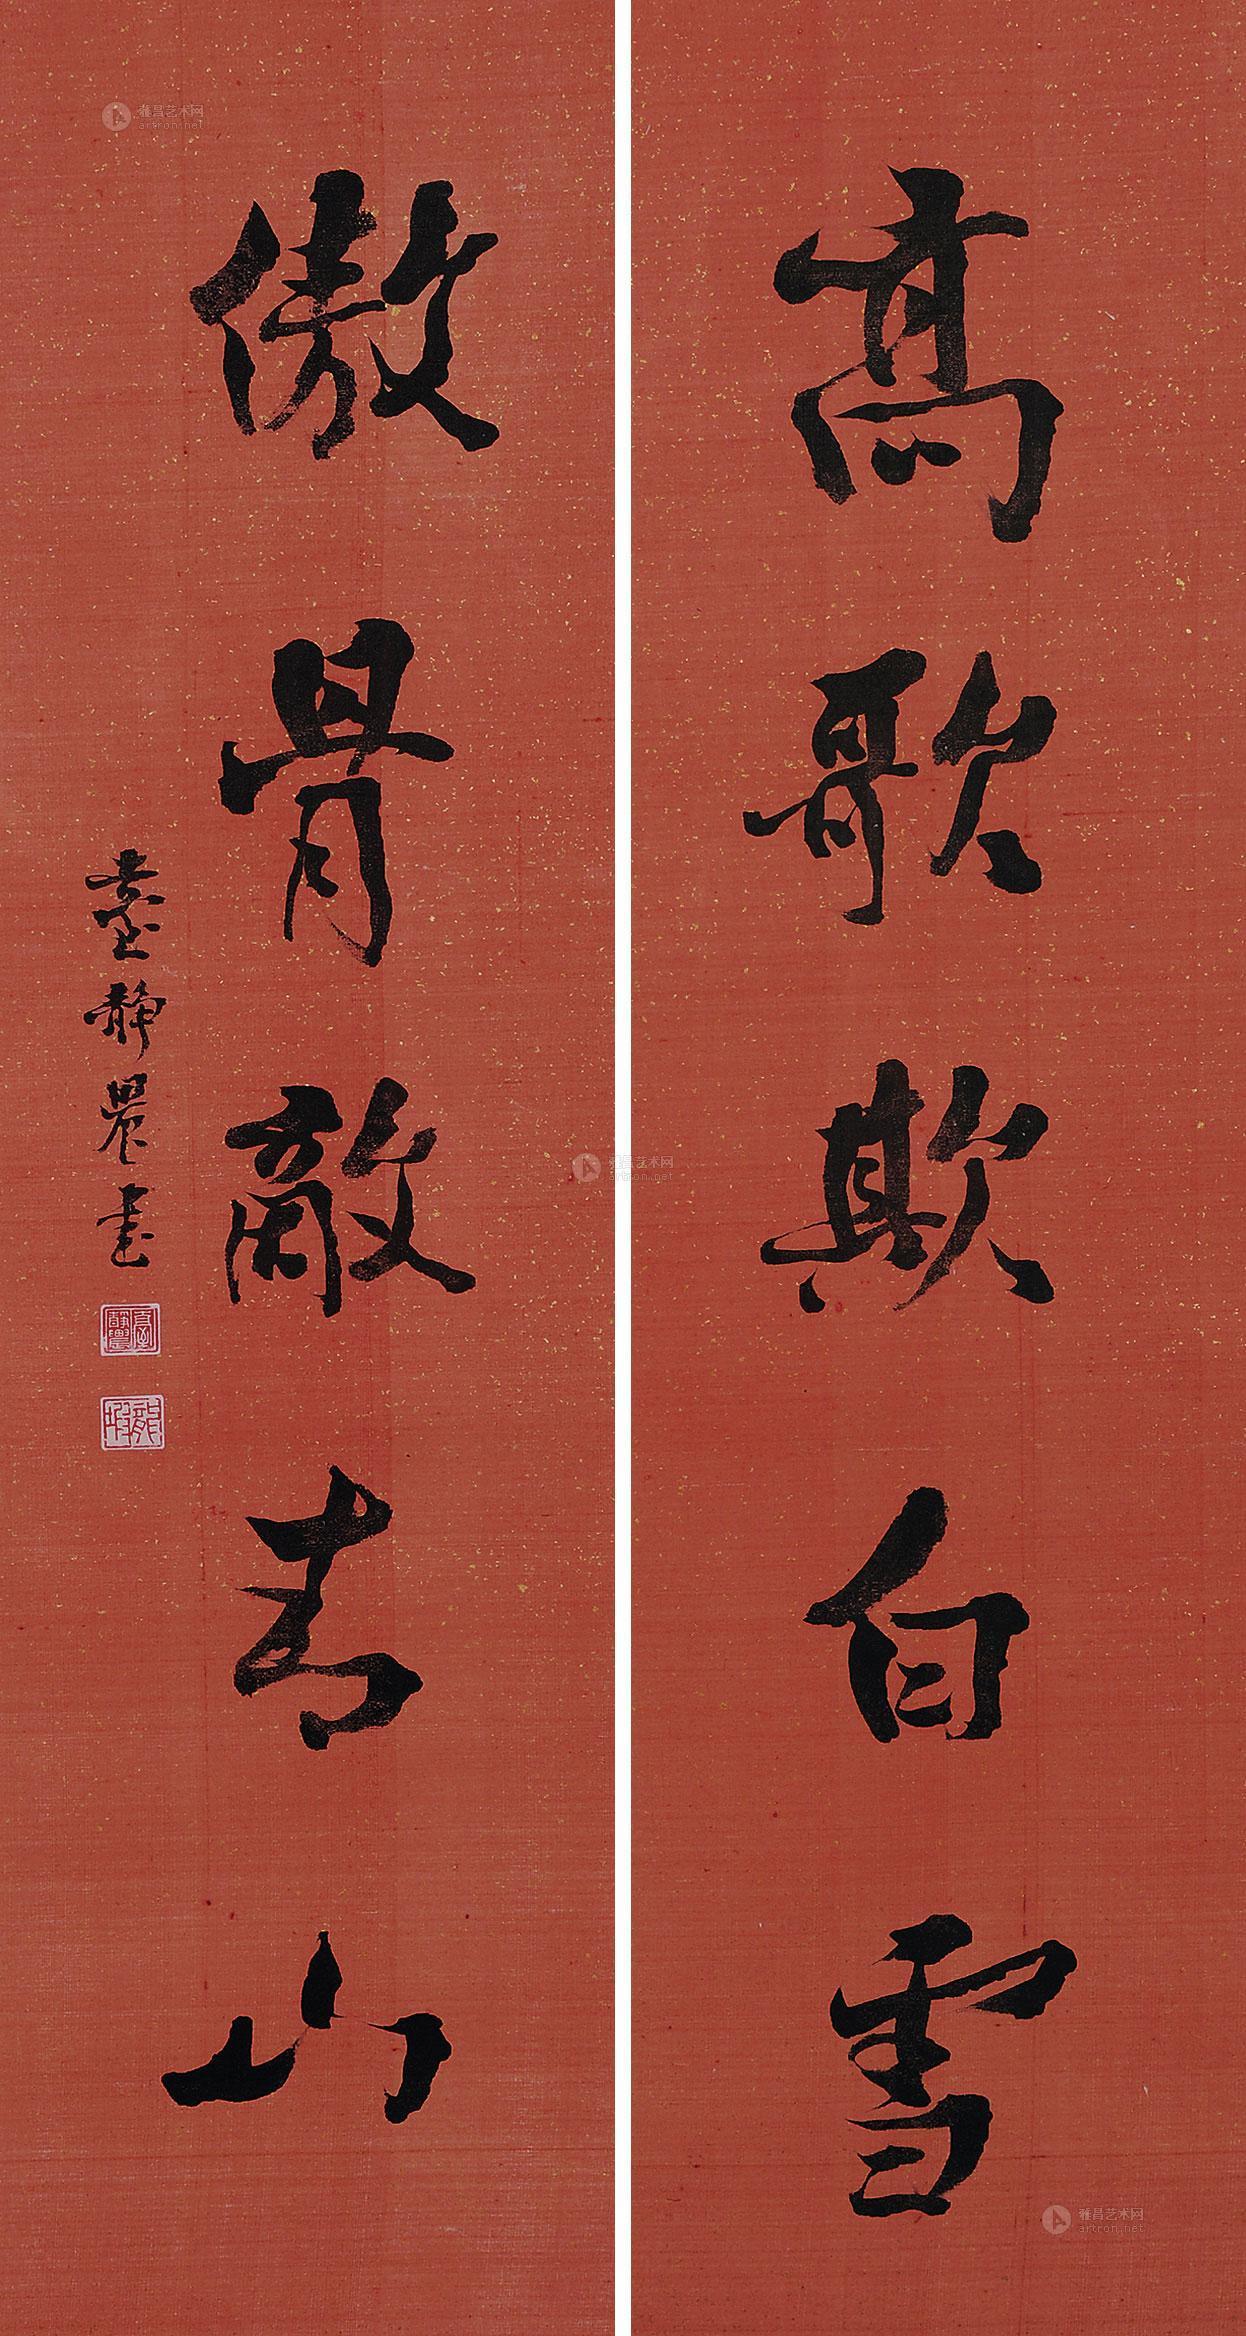 高歌欺白雪
傲骨敵青山
臺靜農書
臺靜農
龍坡
雅昌艺术网
artron.net
雅昌艺术网
artron.net
雅昌艺术网
artron.net